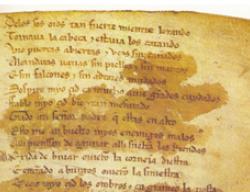 Delos sos oios tan fuerte mientre lorando
Tornaua la cabeça & estaua los catando
Vio puertas abiertas & vços sin cañados
Alcandaras uazias sin pielles & sin mantos
E sin falcones & sin adtores mudados
Sospiro myo çid ca mucho auie grandes cuydados
Fablo myo çid bien & tan mesurado
Grado señor padre que estas en alto
Esto me an buelto myos enemigos malos
Alli pienssan de aguiiar alli sueltan las Riendas
exida de biuar ouieron la corneia diestra
E entrando a burgos ouieron la siniestra
myo çid los ombros & engrameo la tiesta